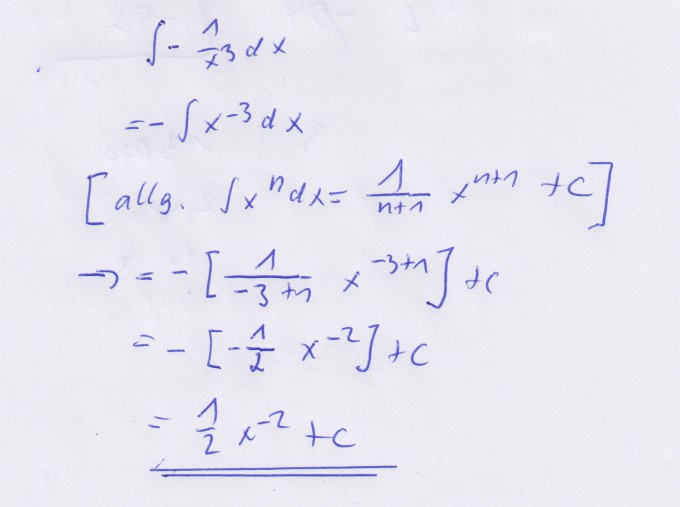 ∫ - 1/x³ dx
= - ∫ x⁻³ dx
[allg. ∫ xⁿ dx = 1/(n+1) xⁿ⁺¹ + C]
→ = - [1/(-3+1) x⁻³⁺¹] + C
= - [-1/2 x⁻²] + C
= 1/2 x⁻² + C